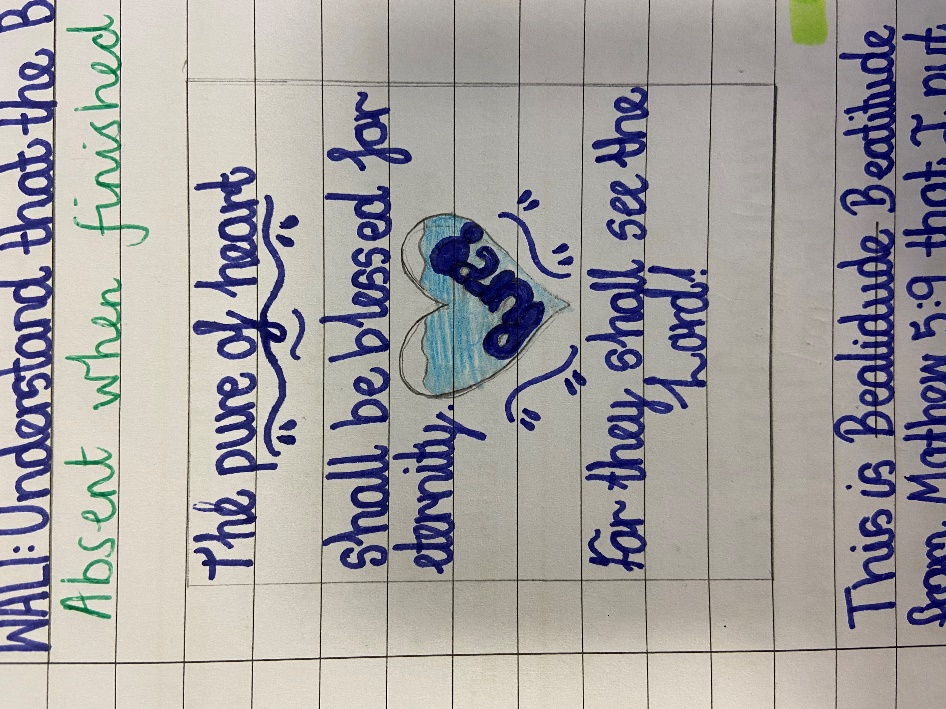 WALI: Understand that the B
Absent when finished
The pure of heart
shall be blessed for
eternity.
Pure
For they shall see the
Lord!
This is Bealidude Beatitude
from Mathew 5:9 that I put